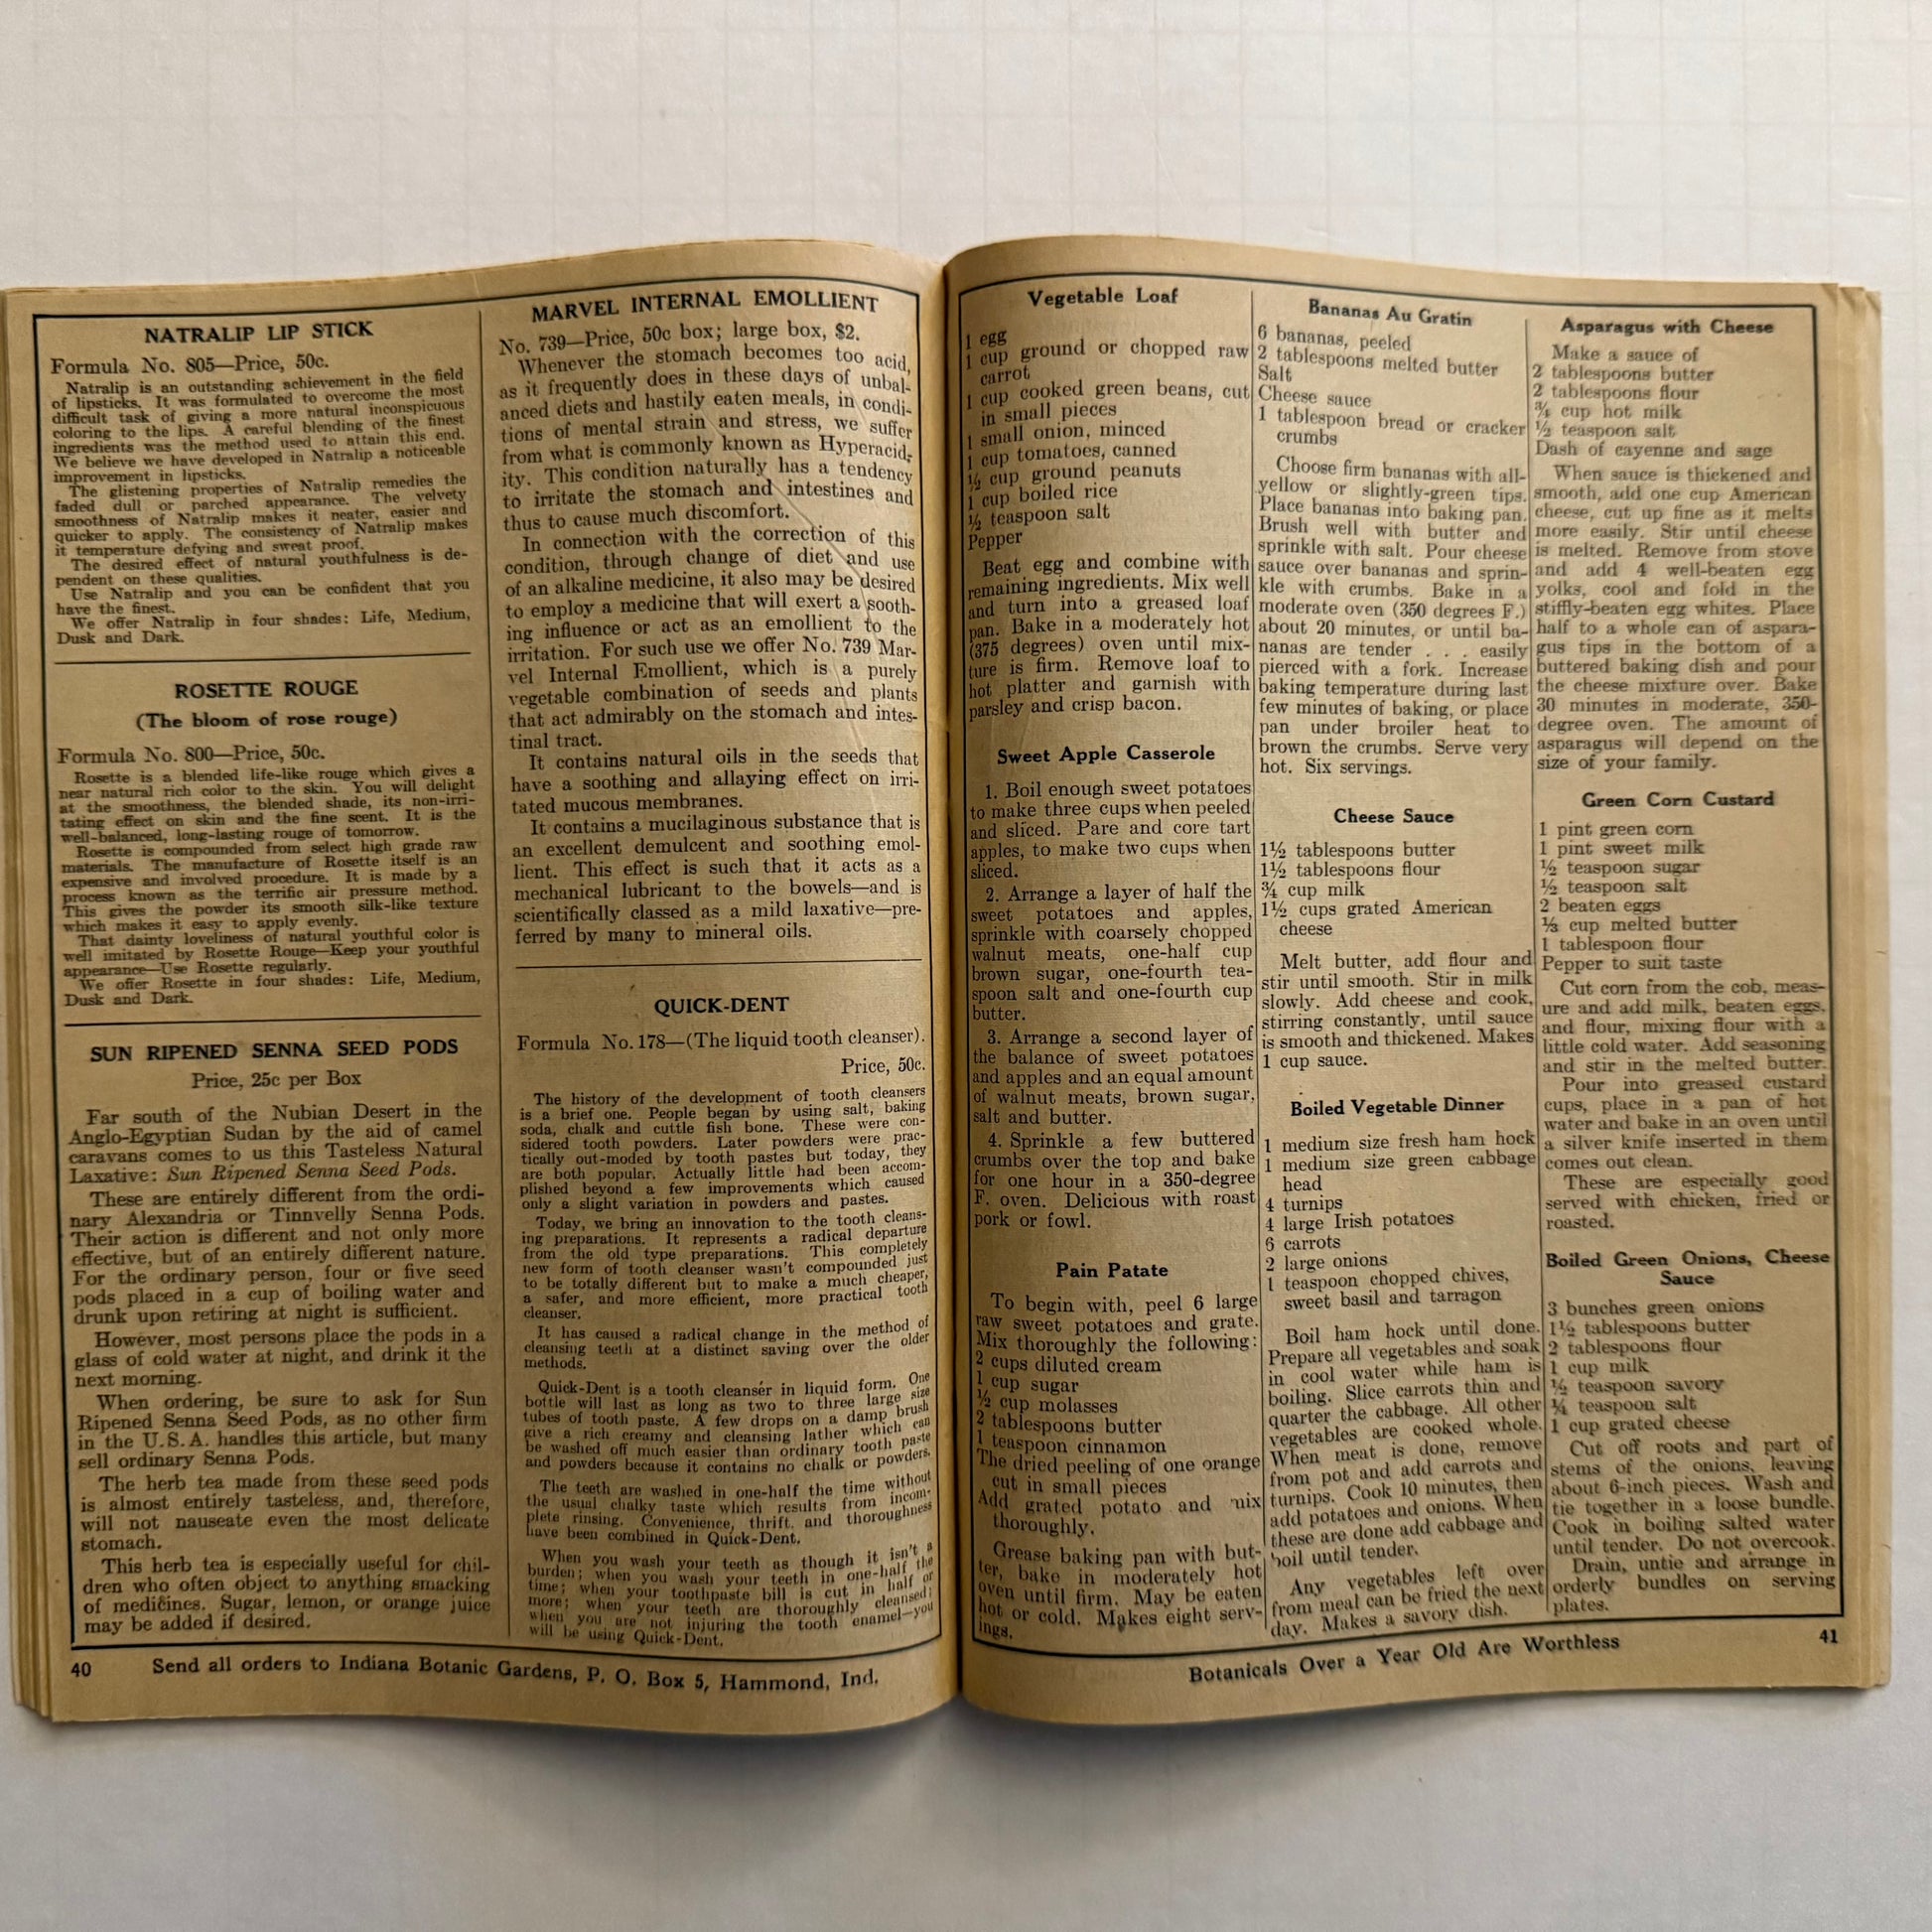 NATRALIP LIP STICK
Formula No. 805—Price, 50c.
Natralip is an outstanding achievement in the field
of lipsticks. It was formulated to overcome the most
difficult task of giving a more natural inconspicuous
coloring to the lips. A careful blending of the finest
ingredients was the method used to attain this end.
We believe we have developed in Natralip a noticeable
improvement in lipsticks.
The glistening properties of Natralip remedies the
faded dull or parched appearance. The velvety
smoothness of Natralip makes it neater, easier and
quicker to apply. The consistency of Natralip makes
it temperature defying and sweat proof.
The desired effect of natural youthfulness is de-
pendent on these qualities.
Use Natralip and you can be confident that you
have the finest.
We offer Natralip in four shades: Life, Medium,
Dusk and Dark.
ROSETTE ROUGE
(The bloom of rose rouge)
Formula No. 800—Price, 50c.
Rosette is a blended life-like rouge which gives a
near natural rich color to the skin. You will delight
at the smoothness, the blended shade, its non-irri-
tating effect on skin and the fine scent. It is the
well-balanced, long-lasting rouge of tomorrow.
Rosette is compounded from select high grade raw
materials. The manufacture of Rosette itself is an
expensive and involved procedure. It is made by a
process known as the terrific air pressure method.
This gives the powder its smooth silk-like texture
which makes it easy to apply evenly.
That dainty loveliness of natural youthful color is
well imitated by Rosette Rouge—Keep your youthful
appearance—Use Rosette regularly.
We offer Rosette in four shades: Life, Medium,
Dusk and Dark.
SUN RIPENED SENNA SEED PODS
Price, 25c per Box
Far south of the Nubian Desert in the
Anglo-Egyptian Sudan by the aid of camel
caravans comes to us this Tasteless Natural
Laxative: Sun Ripened Senna Seed Pods.
These are entirely different from the ordi-
nary Alexandria or Tinnvelly Senna Pods.
Their action is different and not only more
effective, but of an entirely different nature.
For the ordinary person, four or five seed
pods placed in a cup of boiling water and
drunk upon retiring at night is sufficient.
However, most persons place the pods in a
glass of cold water at night, and drink it the
next morning.
When ordering, be sure to ask for Sun
Ripened Senna Seed Pods, as no other firm
in the U.S.A. handles this article, but many
sell ordinary Senna Pods.
The herb tea made from these seed pods
is almost entirely tasteless, and, therefore,
will not nauseate even the most delicate
stomach.
This herb tea is especially useful for chil-
dren who often object to anything smacking
of medicines. Sugar, lemon, or orange juice
may be added if desired.
MARVEL INTERNAL EMOLLIENT
No. 739—Price, 50c box; large box, $2.
Whenever the stomach becomes too acid,
as it frequently does in these days of unbal-
anced diets and hastily eaten meals, in condi-
tions of mental strain and stress, we suffer
from what is commonly known as Hyperacid-
ity. This condition naturally has a tendency
to irritate the stomach and intestines and
thus to cause much discomfort.
In connection with the correction of this
condition, through change of diet and use
of an alkaline medicine, it also may be desired
to employ a medicine that will exert a sooth-
ing influence or act as an emollient to the
irritation. For such use we offer No. 739 Mar-
vel Internal Emollient, which is a purely
vegetable combination of seeds and plants
that act admirably on the stomach and intes-
tinal tract.
It contains natural oils in the seeds that
have a soothing and allaying effect on irri-
tated mucous membranes.
It contains a mucilaginous substance that is
an excellent demulcent and soothing emol-
lient. This effect is such that it acts as a
mechanical lubricant to the bowels—and is
scientifically classed as a mild laxative—pre-
ferred by many to mineral oils.
QUICK-DENT
Formula No. 178—(The liquid tooth cleanser).
Price, 50c.
The history of the development of tooth cleansers
is a brief one. People began by using salt, baking
soda, chalk and cuttle fish bone. These were con-
sidered tooth powders. Later powders were prac-
tically out-moded by tooth pastes but today, they
are both popular. Actually little had been accom-
plished beyond a few improvements which caused
only a slight variation in powders and pastes.
Today, we bring an innovation to the tooth cleans-
ing preparations. It represents a radical departure
from the old type preparations. This completely
new form of tooth cleanser wasn't compounded just
to be totally different but to make a much cheaper,
a safer, and more efficient, more practical tooth
cleanser.
It has caused a radical change in the method of
cleansing teeth at a distinct saving over the older
methods.
Quick-Dent is a tooth cleanser in liquid form. One
bottle will last as long as two to three large size
tubes of tooth paste. A few drops on a damp brush
give a rich creamy and cleansing lather which can
be washed off much easier than ordinary tooth paste
and powders because it contains no chalk or powders.
The teeth are washed in one-half the time without
the usual chalky taste which results from incom-
plete rinsing. Convenience, thrift, and thoroughness
have been combined in Quick-Dent.
When you wash your teeth as though it isn't a
burden; when you wash your teeth in one-half the
time; when your toothpaste bill is cut in half or
more; when your teeth are thoroughly cleansed;
when you are not injuring the tooth enamel—you
will be using Quick-Dent.
40 Send all orders to Indiana Botanic Gardens, P. O. Box 5, Hammond, Ind.
Vegetable Loaf
1 egg
1 cup ground or chopped raw
carrot
1 cup cooked green beans, cut
in small pieces
1 small onion, minced
1 cup tomatoes, canned
½ cup ground peanuts
1 cup boiled rice
½ teaspoon salt
Pepper
Beat egg and combine with
remaining ingredients. Mix well
and turn into a greased loaf
pan. Bake in a moderately hot
(375 degrees) oven until mix-
ture is firm. Remove loaf to
hot platter and garnish with
parsley and crisp bacon.
Sweet Apple Casserole
1. Boil enough sweet potatoes
to make three cups when peeled
and sliced. Pare and core tart
apples, to make two cups when
sliced.
2. Arrange a layer of half the
sweet potatoes and apples,
sprinkle with coarsely chopped
walnut meats, one-half cup
brown sugar, one-fourth tea-
spoon salt and one-fourth cup
butter.
3. Arrange a second layer of
the balance of sweet potatoes
and apples and an equal amount
of walnut meats, brown sugar,
salt and butter.
4. Sprinkle a few buttered
crumbs over the top and bake
for one hour in a 350-degree
F. oven. Delicious with roast
pork or fowl.
Pain Patate
To begin with, peel 6 large
raw sweet potatoes and grate.
Mix thoroughly the following:
2 cups diluted cream
1 cup sugar
½ cup molasses
2 tablespoons butter
1 teaspoon cinnamon
The dried peeling of one orange
cut in small pieces
Add grated potato and mix
thoroughly.
Grease baking pan with but-
ter, bake in moderately hot
oven until firm. May be eaten
hot or cold. Makes eight serv-
ings.
Bananas Au Gratin
6 bananas, peeled
2 tablespoons melted butter
Salt
Cheese sauce
1 tablespoon bread or cracker
crumbs
Choose firm bananas with all-
yellow or slightly-green tips.
Place bananas into baking pan.
Brush well with butter and
sprinkle with salt. Pour cheese
sauce over bananas and sprin-
kle with crumbs. Bake in a
moderate oven (350 degrees F.)
about 20 minutes, or until ba-
nanas are tender . . . easily
pierced with a fork. Increase
baking temperature during last
few minutes of baking, or place
pan under broiler heat to
brown the crumbs. Serve very
hot. Six servings.
Cheese Sauce
1½ tablespoons butter
1½ tablespoons flour
¾ cup milk
1½ cups grated American
cheese
Melt butter, add flour and
stir until smooth. Stir in milk
slowly. Add cheese and cook,
stirring constantly, until sauce
is smooth and thickened. Makes
1 cup sauce.
Boiled Vegetable Dinner
1 medium size fresh ham hock
1 medium size green cabbage
head
4 turnips
4 large Irish potatoes
6 carrots
2 large onions
1 teaspoon chopped chives,
sweet basil and tarragon
Boil ham hock until done.
Prepare all vegetables and soak
in cool water while ham is
boiling. Slice carrots thin and
quarter the cabbage. All other
vegetables are cooked whole.
When meat is done, remove
from pot and add carrots and
turnips. Cook 10 minutes, then
add potatoes and onions. When
these are done add cabbage and
boil until tender.
Any vegetables left over
from meal can be fried the next
day. Makes a savory dish.
Asparagus with Cheese
Make a sauce of
2 tablespoons butter
2 tablespoons flour
¾ cup hot milk
½ teaspoon salt
Dash of cayenne and sage
When sauce is thickened and
smooth, add one cup American
cheese, cut up fine as it melts
more easily. Stir until cheese
is melted. Remove from stove
and add 4 well-beaten egg
yolks, cool and fold in the
stiffly-beaten egg whites. Place
half to a whole can of aspara-
gus tips in the bottom of a
buttered baking dish and pour
the cheese mixture over. Bake
30 minutes in moderate, 350-
degree oven. The amount of
asparagus will depend on the
size of your family.
Green Corn Custard
1 pint green corn
1 pint sweet milk
½ teaspoon sugar
½ teaspoon salt
2 beaten eggs
⅓ cup melted butter
1 tablespoon flour
Pepper to suit taste
Cut corn from the cob, meas-
ure and add milk, beaten eggs,
and flour, mixing flour with a
little cold water. Add seasoning
and stir in the melted butter.
Pour into greased custard
cups, place in a pan of hot
water and bake in an oven until
a silver knife inserted in them
comes out clean.
These are especially good
served with chicken, fried or
roasted.
Boiled Green Onions, Cheese
Sauce
3 bunches green onions
1½ tablespoons butter
2 tablespoons flour
1 cup milk
½ teaspoon savory
¼ teaspoon salt
1 cup grated cheese
Cut off roots and part of
stems of the onions, leaving
about 6-inch pieces. Wash and
tie together in a loose bundle.
Cook in boiling salted water
until tender. Do not overcook.
Drain, untie and arrange in
orderly bundles on serving
plates.
Botanicals Over a Year Old Are Worthless 41